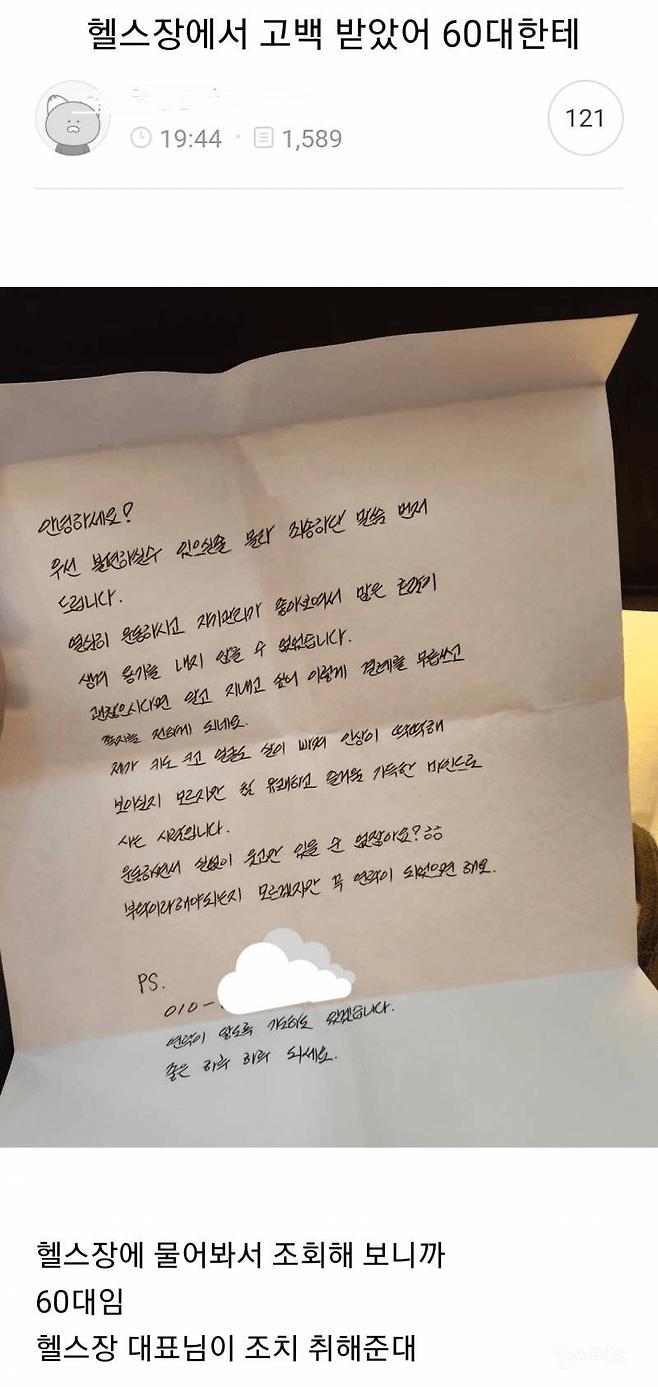 헬스장에서 고백 받았어 60대한테
19:44 · 1,589
121
안녕하세요?
우선 불편하실수 있으실줄 몰라 죄송하단 말씀 먼저
드립니다.
열심히 운동하시고 자기관리가 좋아보여서 많은 호감이
생겨 용기를 내지 않을 수 없었습니다.
괜찮으시다면 알고 지내고 싶어 이렇게 결례를 무릅쓰고
쪽지를 전하게 되네요.
제가 키도 크고 얼굴도 살이 빠져 인상이 딱딱해
보이실지 모르지만 참 유쾌하고 즐거움 가득한 마인드로
사는 사람입니다.
운동하면서 실없이 웃고만 있을 순 없잖아요?ㅎㅎ
부탁이라해야되는지 모르겠지만 꼭 연락이 되었으면 해요.
PS.
010-
연락이 닿도록 기도하고 있겠습니다.
좋은 하루 하루 되세요.
헬스장에 물어봐서 조회해 보니까
60대임
헬스장 대표님이 조치 취해준대
인스티즈